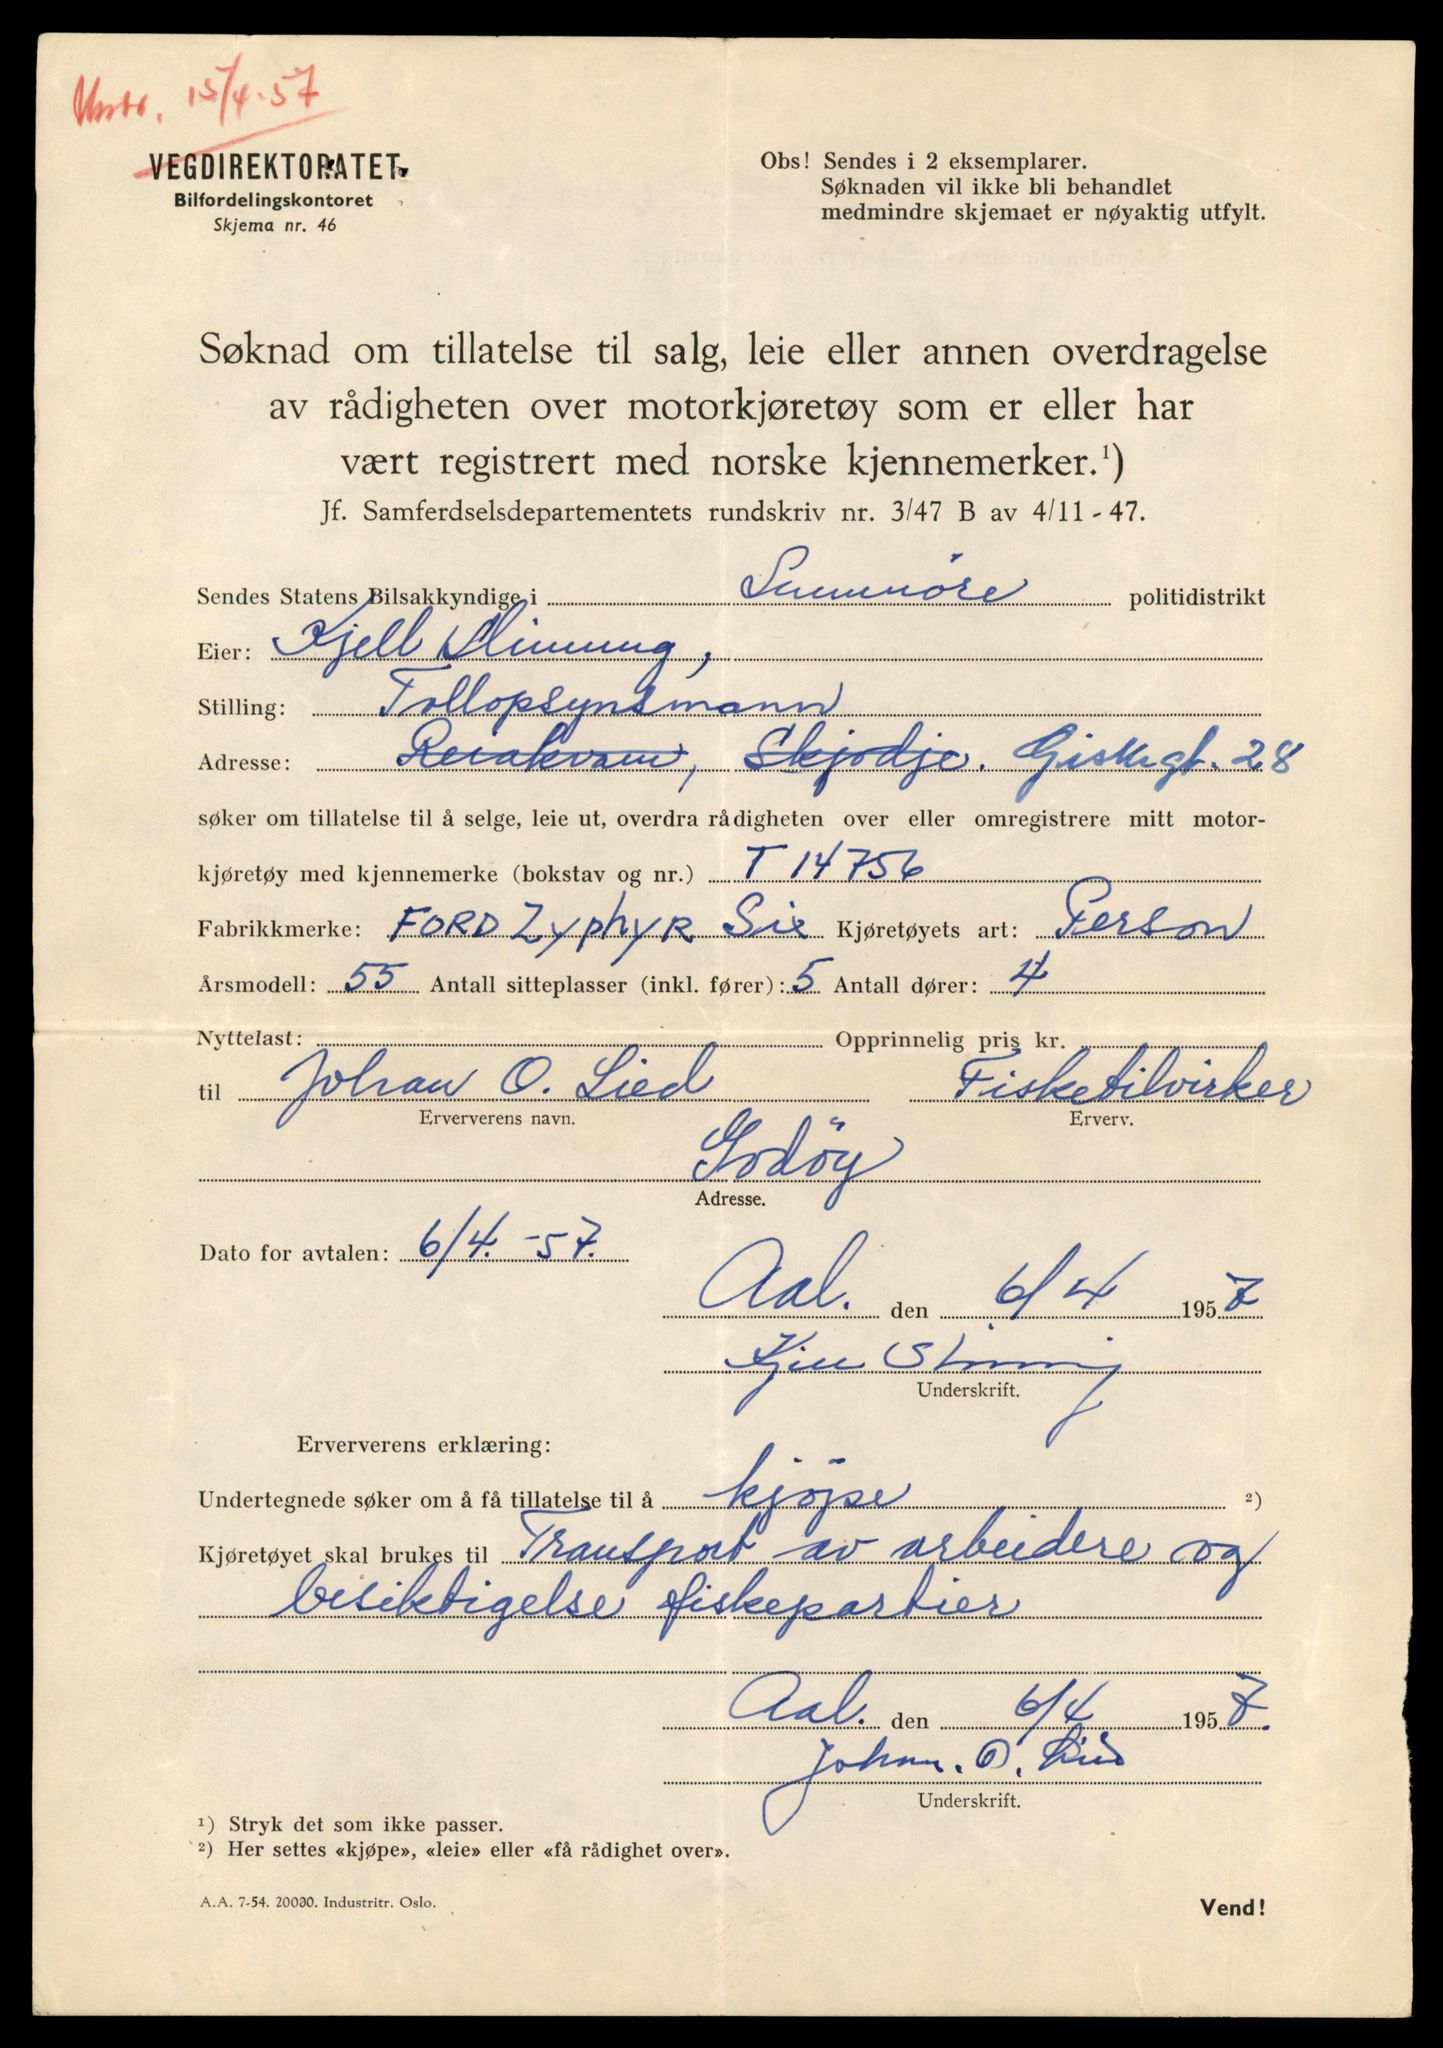 15/4-57
VEGDIREKTORATET
Bilfordelingskontoret
Skjema nr. 46
Obs! Sendes i 2 eksemplarer.
Søknaden vil ikke bli behandlet
medmindre skjemaet er nøyaktig utfylt.
Søknad om tillatelse til salg, leie eller annen overdragelse
av rådigheten over motorkjøretøy som er eller har
vært registrert med norske kjennemerker.¹)
Jf. Samferdselsdepartementets rundskriv nr. 3/47 B av 4/11 - 47.
Sendes Statens Bilsakkyndige i Sunnmöre politidistrikt
Eier: Kjell
Stilling: Tollopsynsmann
Adresse: Skjodje. Giskegt. 28
søker om tillatelse til å selge, leie ut, overdra rådigheten over eller omregistrere mitt motor-
kjøretøy med kjennemerke (bokstav og nr.) T 14756
Fabrikkmerke: FORD Zyphyr Six Kjøretøyets art: Person
Årsmodell: 55 Antall sitteplasser (inkl. fører): 5 Antall dører: 4
Nyttelast: Opprinnelig pris kr.
til Johan O. Lied Fisketilvirker
Erververens navn. Erverv.
Godöy
Adresse.
Dato for avtalen: 6/4.-57.
Aal. den 6/4 1957
Underskrift.
Erververens erklæring:
Undertegnede søker om å få tillatelse til å kjöpe ²)
Kjøretøyet skal brukes til Transport av arbeidere og
besiktigelse fiskepartier
Aal. den 6/4 1957.
Johan. O. Lied
Underskrift.
¹) Stryk det som ikke passer.
²) Her settes «kjøpe», «leie» eller «få rådighet over».
A.A. 7-54. 20000. Industritr. Oslo.
Vend!